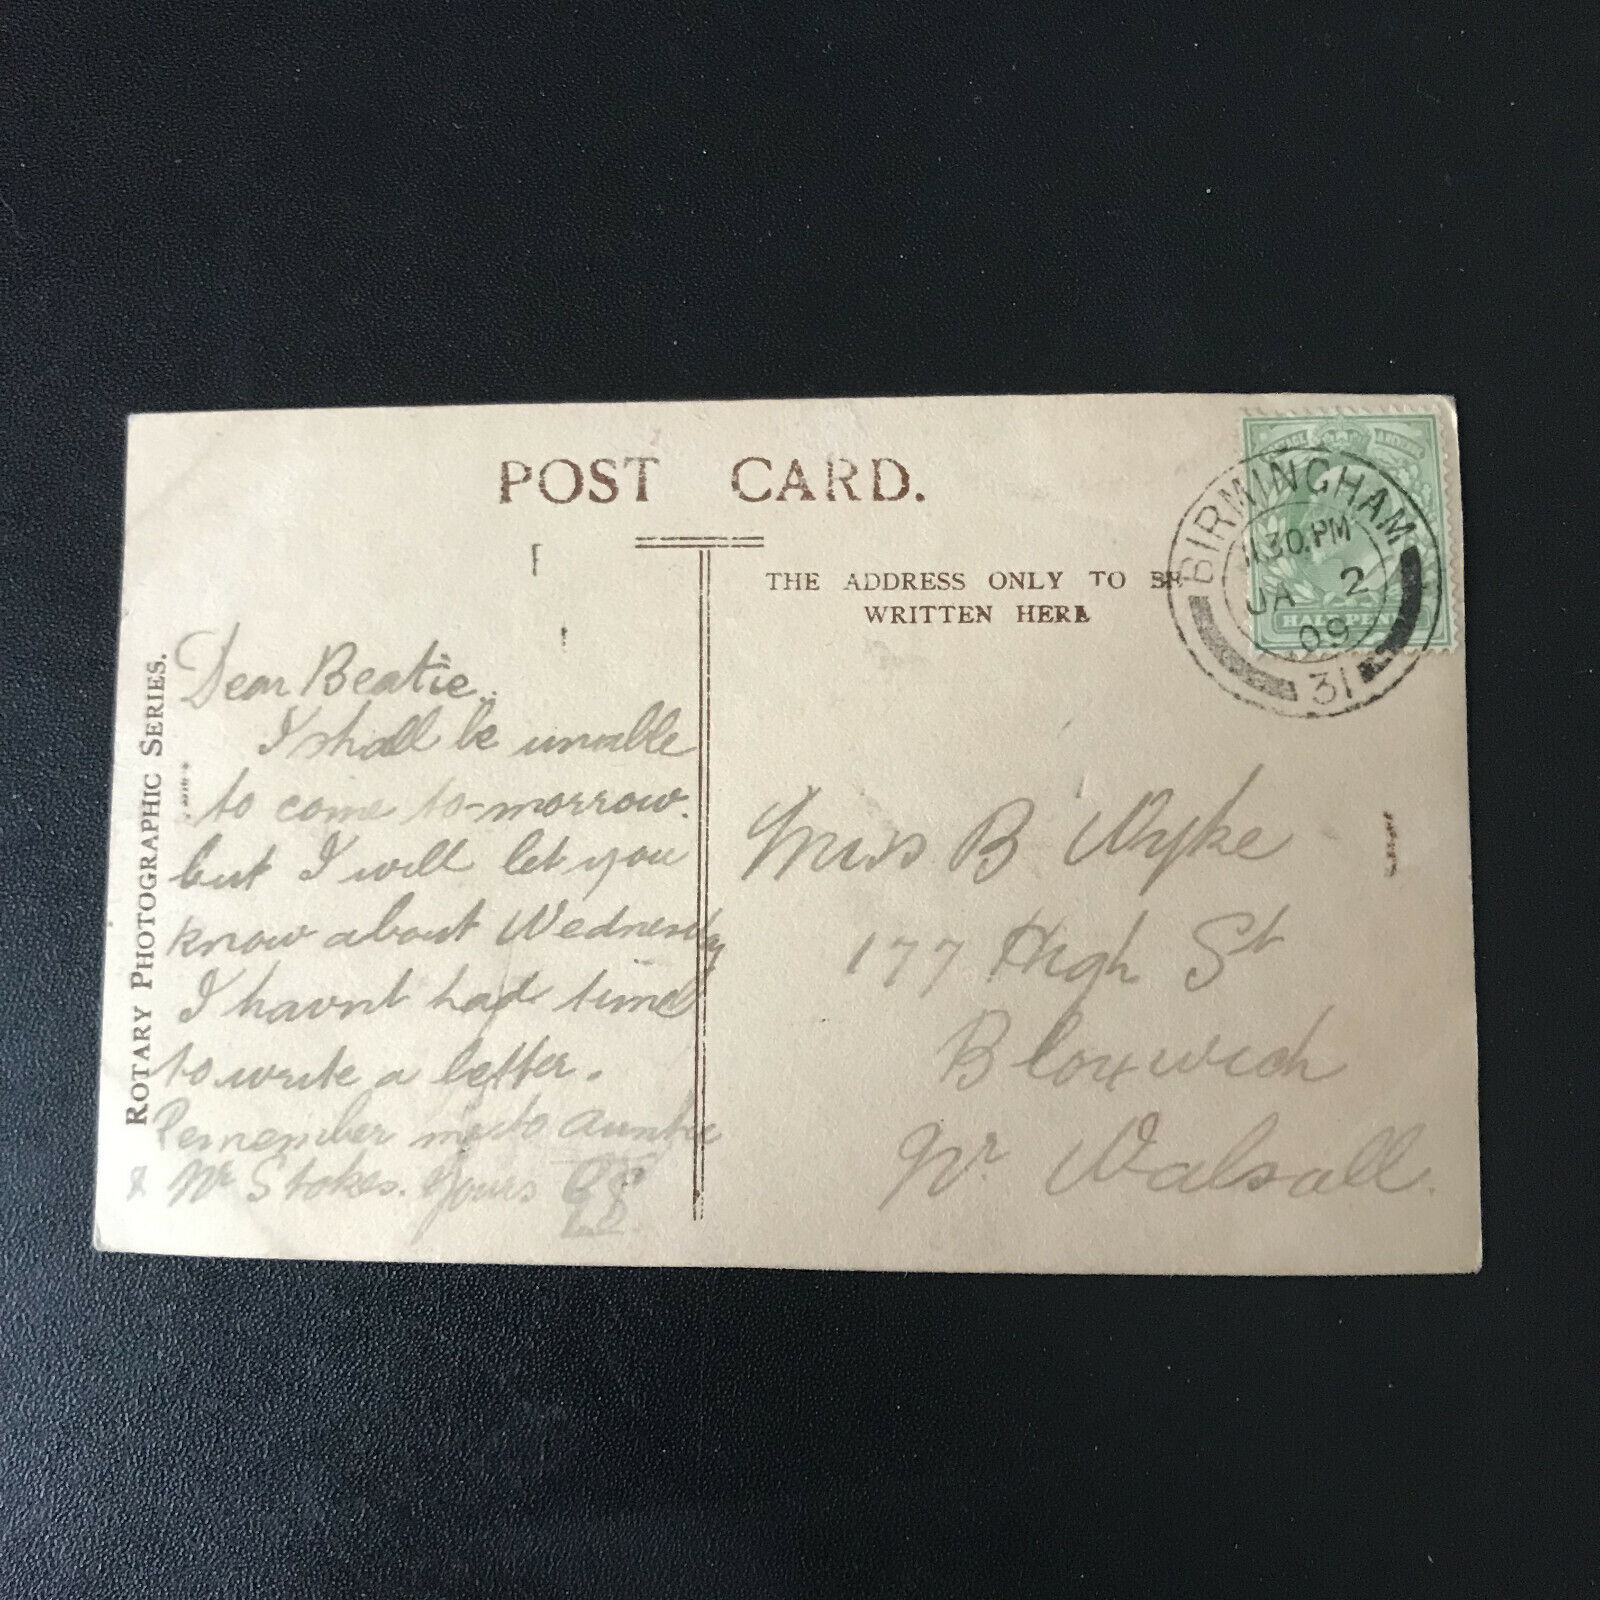 POST CARD.
THE ADDRESS ONLY TO BE
WRITTEN HERE
BIRMINGHAM
11.30.PM
JA 2
09
31
HALFPENNY
ROTARY PHOTOGRAPHIC SERIES.
Dear Beatie.
I shall be unable
to come to-morrow.
but I will let you
know about Wednesday
I havnt had time
to write a letter.
Remember me to Auntie
& Mr Stokes. Yours
Miss B Wyke
177 High St
Bloxwich
Nr Walsall.